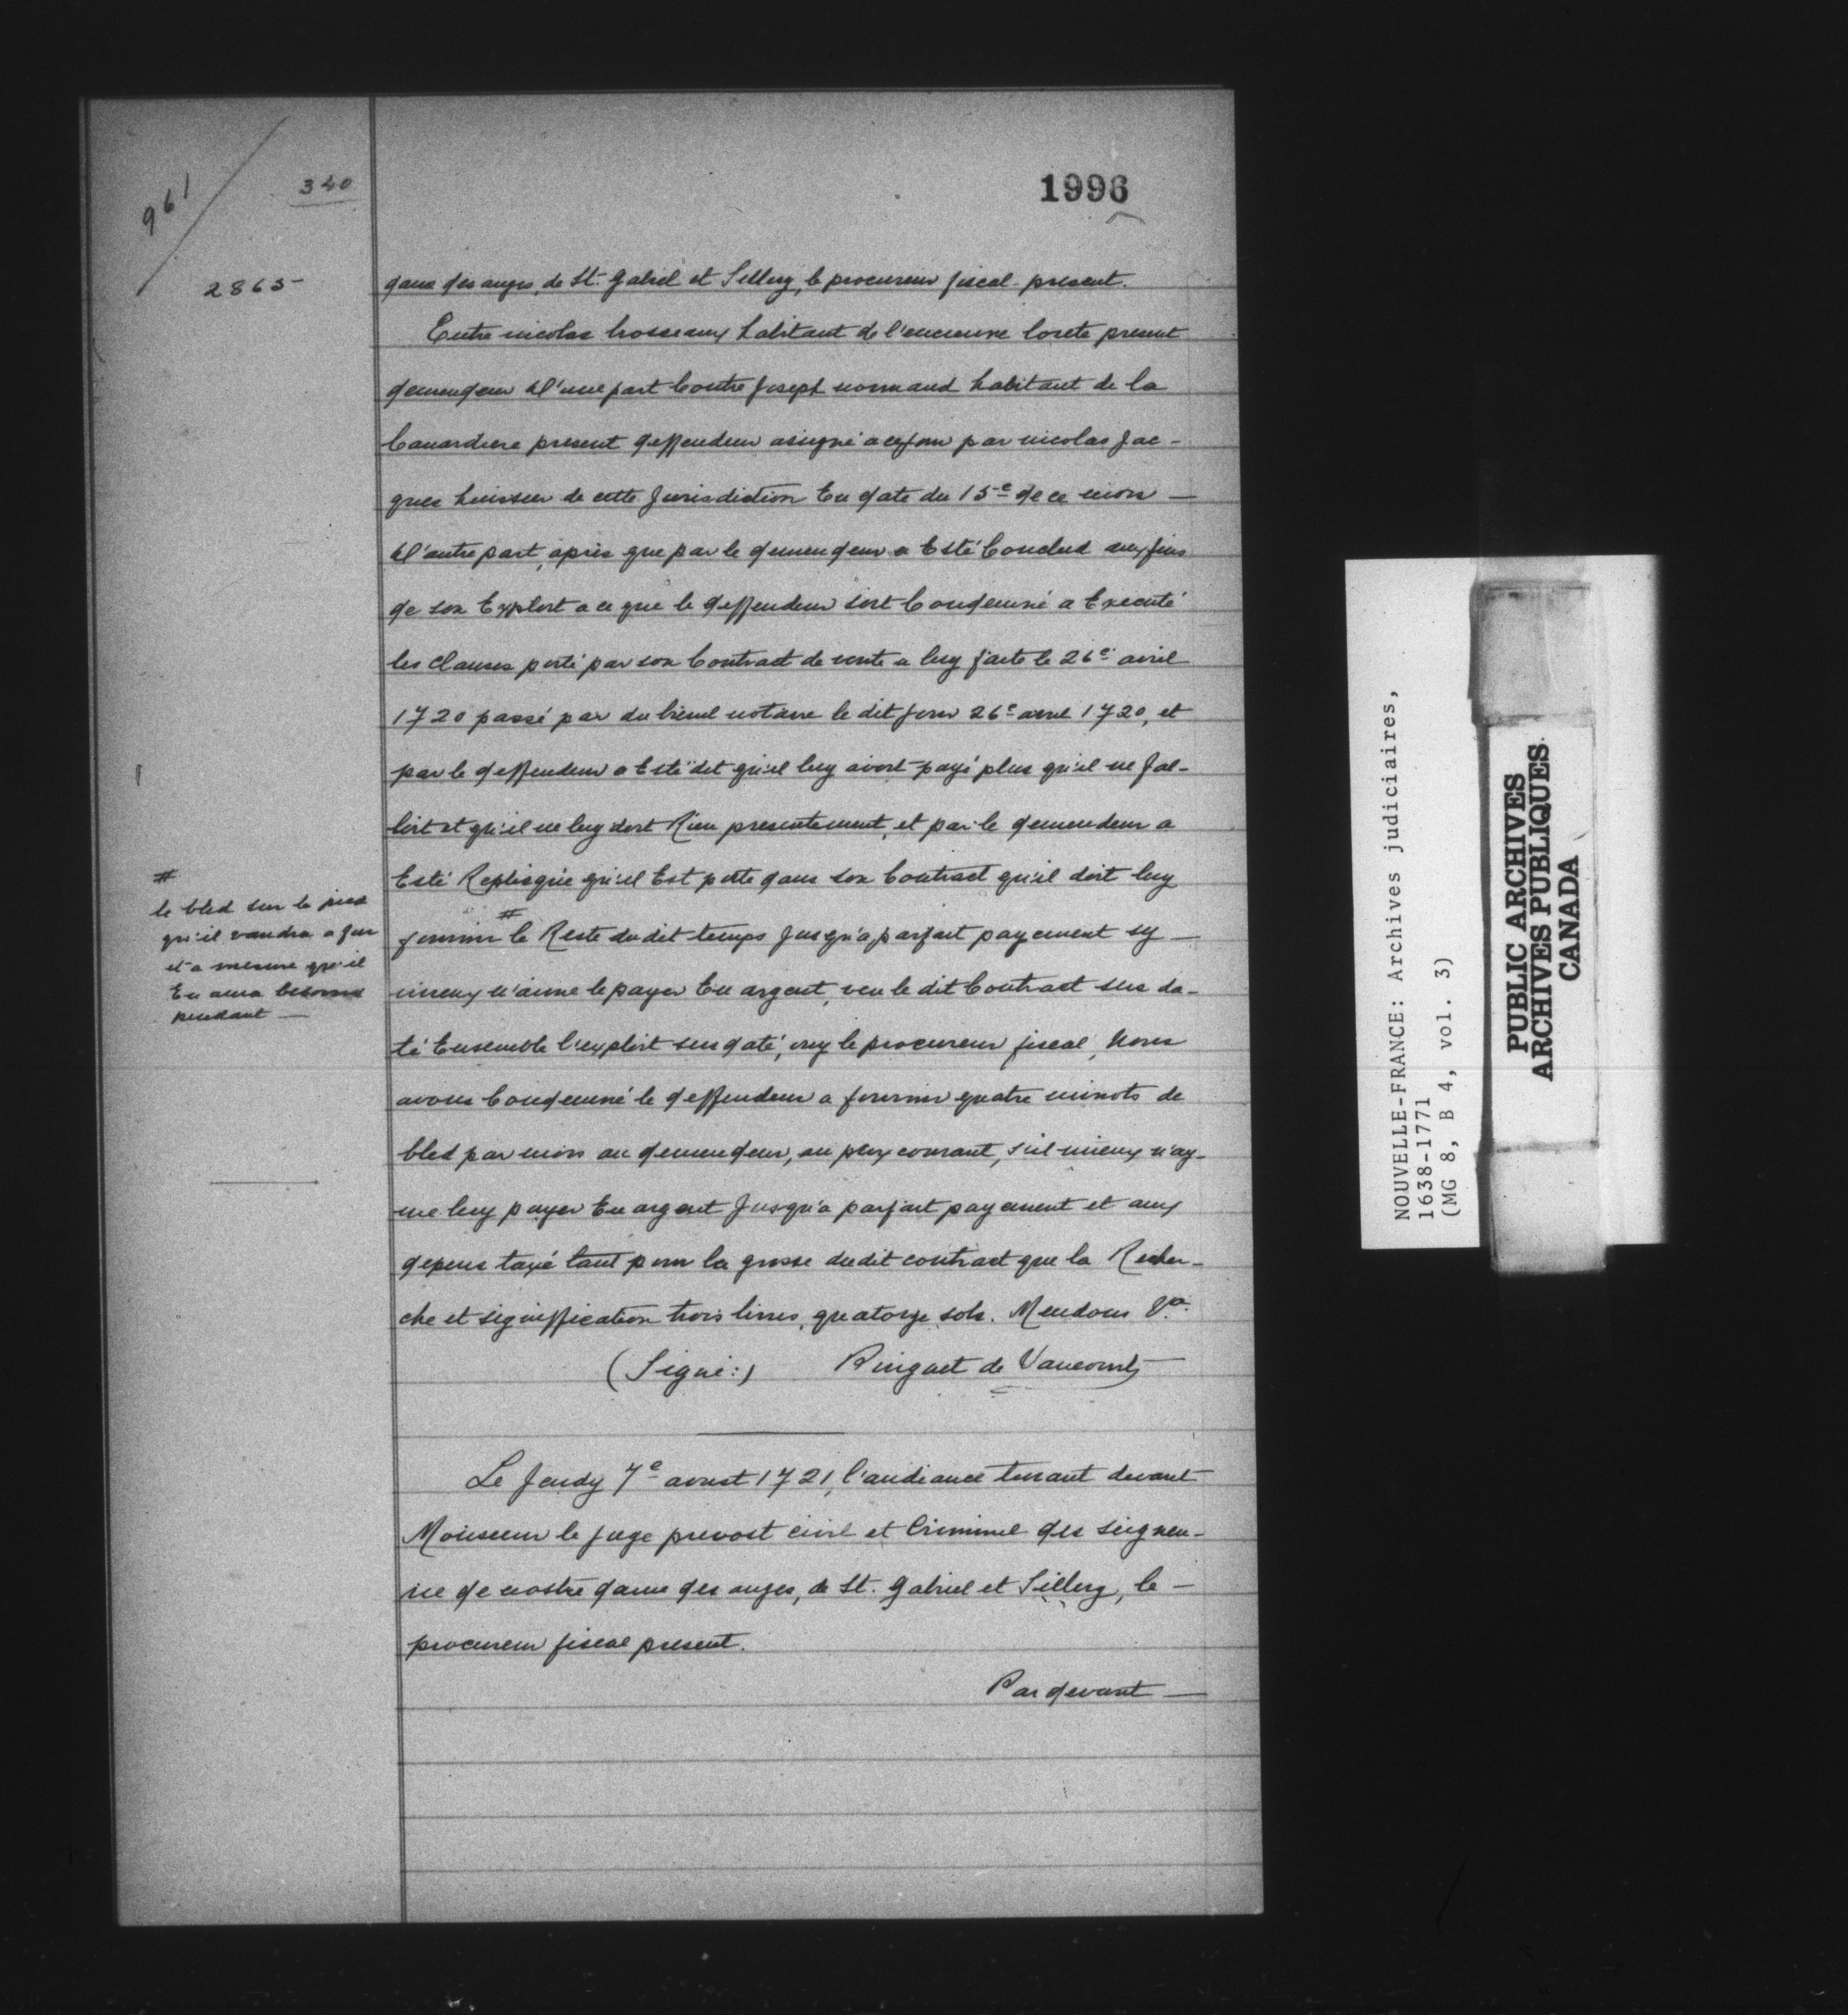 961
340
1996
2865
dame des anges, de St. Gabriel et Sillery, le procureur fiscal present.
Entre nicolas brosseaux habitant de l'encienne lorete present
demendeur d'une part Contre Joseph normand habitant de la
Canardiere present deffendeur asigné a ce jour par nicolas Jac-
ques huissier de cette Jurisdiction En date du 15e de ce mois —
d'autre part, après que par le demendeur a Esté Conclud aux fins
de son Exploit a ce que le deffendeur soit Condemné a Executé
les clauses porté par son Contract de vente a luy faite le 26e avril
1720 passé par du breuil notaire le dit jour 26e avril 1720, et
par le deffendeur a Esté dit qu'il luy avoit payé plus qu'il ne fal-
loit et qu'il ne luy doit Rien presentement, et par le demendeur a
Esté Repliqué qu'il Est porté dans son Contract qu'il doit luy
fournir # le Reste du dit temps Jusqu'a parfait payement sy —
mieux n'aime le payer En argent, veu le dit Contract sus da-
té Ensemble l'exploit sus daté, ouy le procureur fiscal, Nous
avons Condemné le deffendeur a fournir quatre minots de
bled par mois au demendeur, au prix courant, s'il mieux n'ay-
me luy payer En argent Jusqu'a parfait payement et aux
depens taxé tant pour la grosse dudit contract que la Recher-
che et signiffication trois livres, quatorze sols. Mendons &a.
(Signé:) Hinguet de Vaucourt
#
le bled sur le pied
qu'il vaudra a fur
et a mesure qu'il
En aura besoins
pendant —
Le Jeudy 7e aoust 1721, l'audiance tenant devant
Monsieur le juge prevost civil et Criminel des seigneu-
rie de nostre dame des anges, de St. Gabriel et Sillery, le —
procureur fiscal present.
Par devant —
NOUVELLE-FRANCE: Archives judiciaires,
1638-1771
(MG 8, B 4, vol. 3)
PUBLIC ARCHIVES
ARCHIVES PUBLIQUES
CANADA